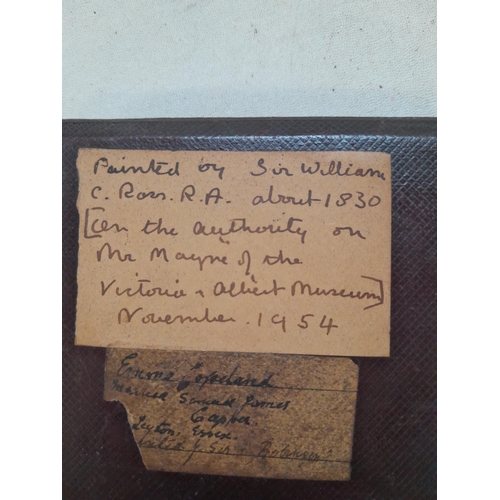 Painted by Sir William
C. Ross. R.A. about 1830
[on the authority on
Mr Mayne of the
Victoria & Albert Museum]
November. 1954
Emma Copeland
married Samuel James
Capper
Leyton. Essex.